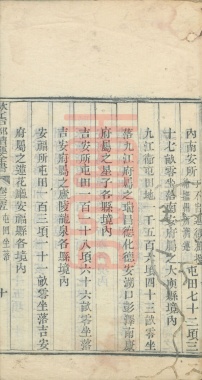 內南安所
屯田七十二項三
十七畝零坐落南安府屬之大南縣境內
九江衞屯田地一千五百六項四十三畝零坐
落九江府屬之瑞昌德化德安湖口彭澤南康
府屬之星子各縣境內
吉安所屯田一百一十八項六十六畝零坐落
吉安府屬之廬陵龍泉各縣境內
安福所屯田一百三項一十一畝零坐落吉安
府屬之蓮花廳安福各縣境內
屯田坐落
十